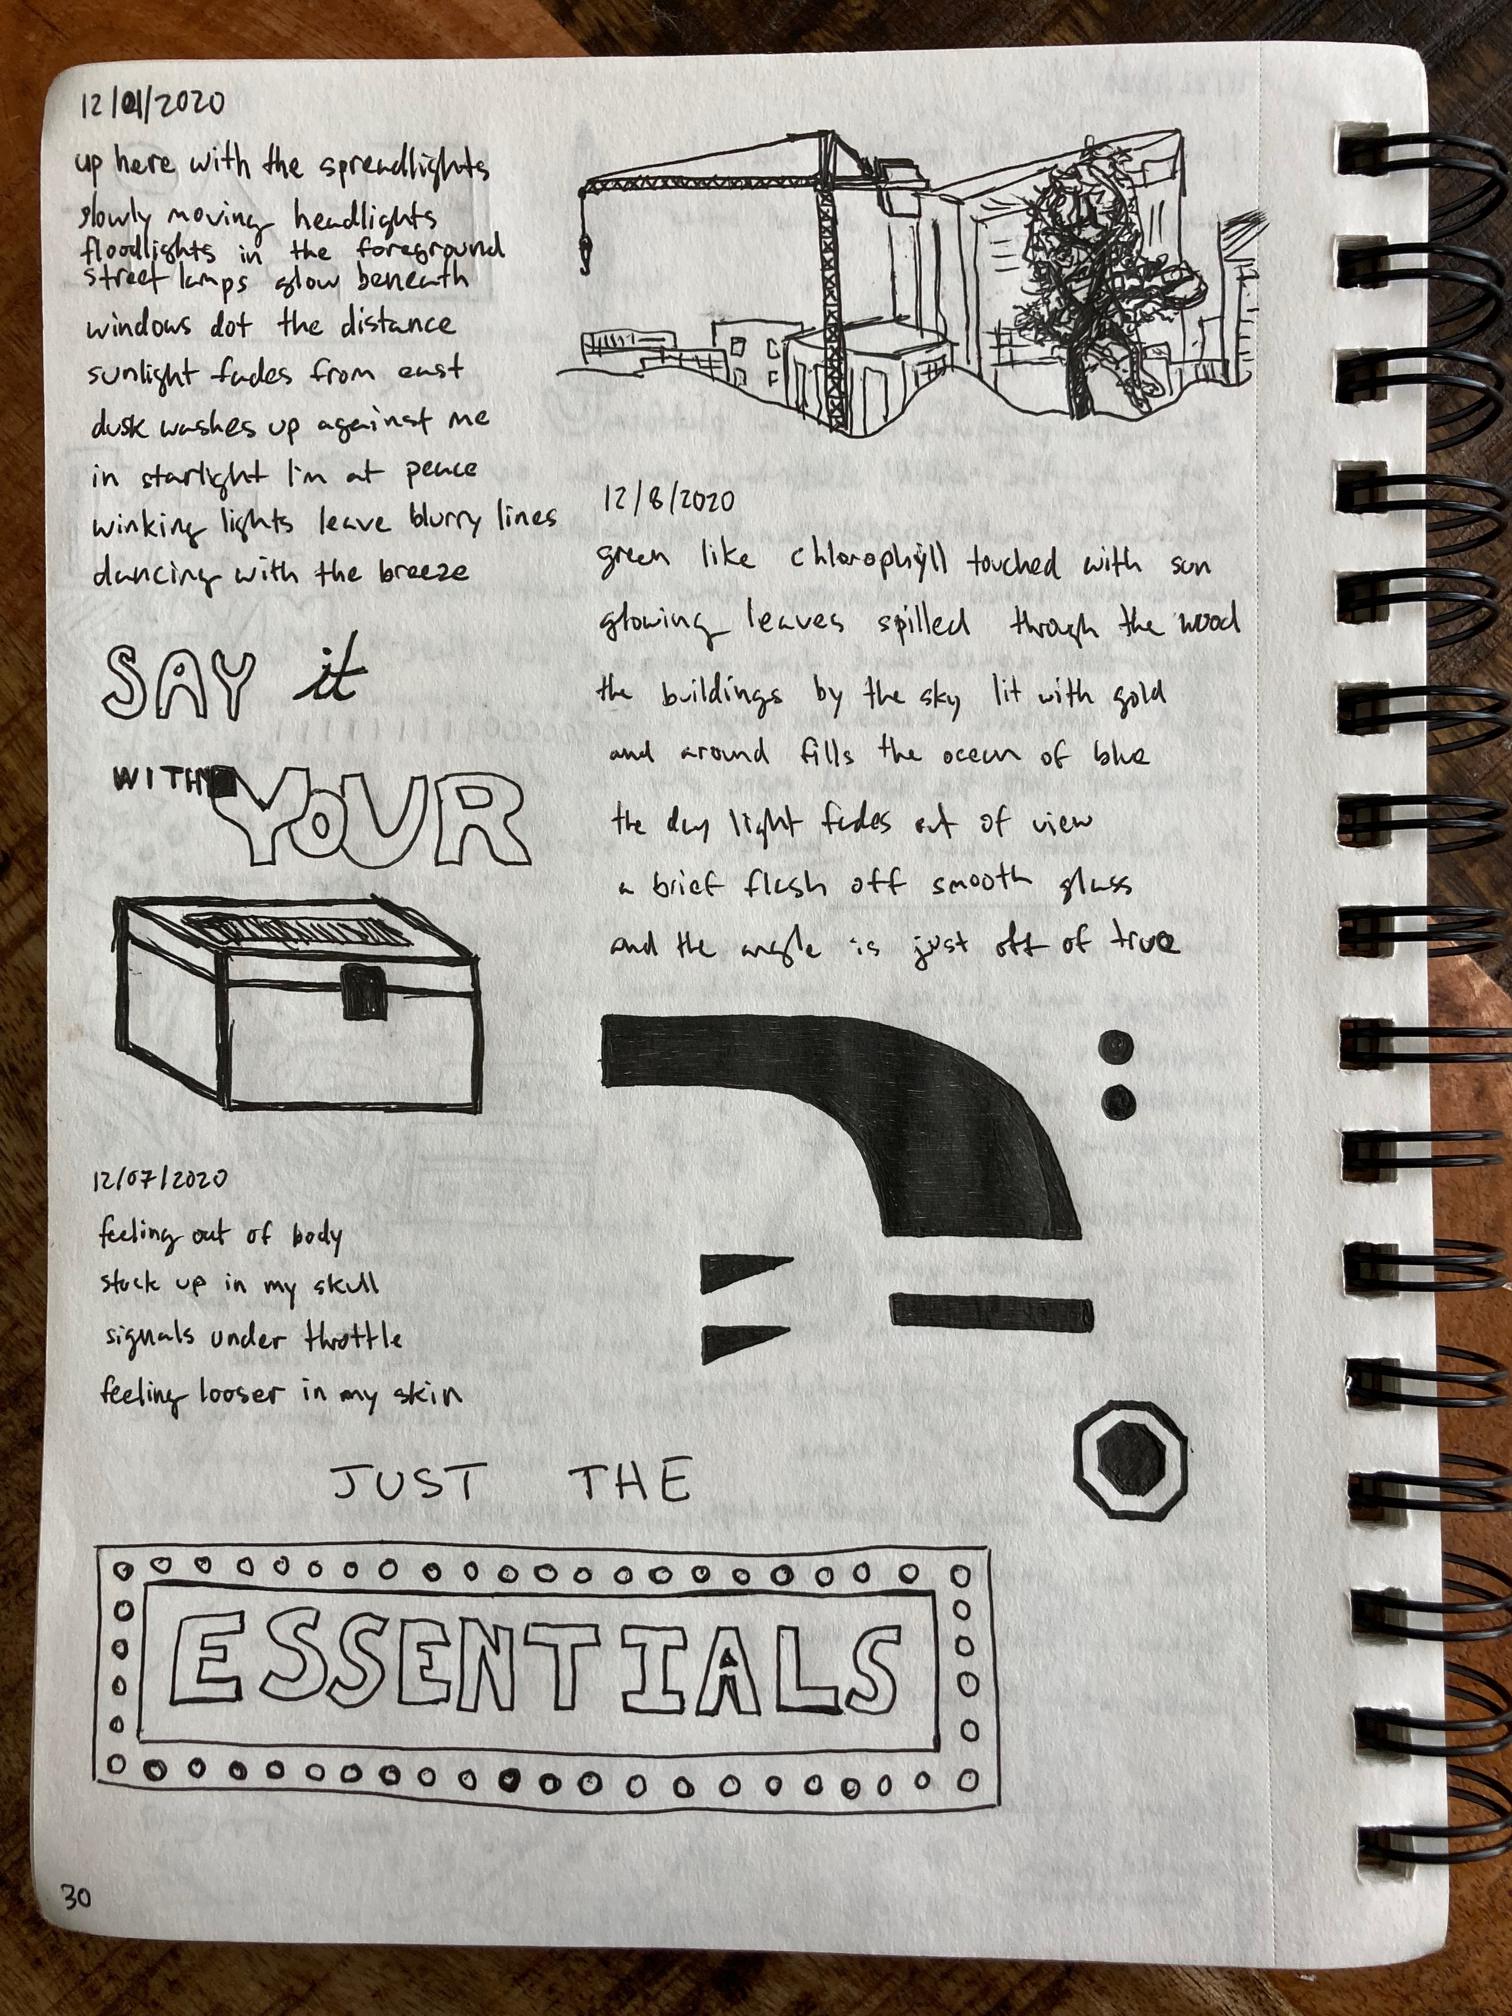 12/01/2020
up here with the spreadlights
slowly moving headlights
floodlights in the foreground
street lamps glow beneath
windows dot the distance
sunlight fades from east
dusk washes up against me
in starlight I'm at peace
winking lights leave blurry lines
dancing with the breeze
SAY it
WITH YOUR
12/07/2020
feeling out of body
stuck up in my skull
signals under throttle
feeling looser in my skin
12/8/2020
green like chlorophyll touched with sun
glowing leaves spilled through the wood
the buildings by the sky lit with gold
and around fills the ocean of blue
the day light fades out of view
a brief flash off smooth glass
and the angle is just off of true
JUST THE
ESSENTIALS
30